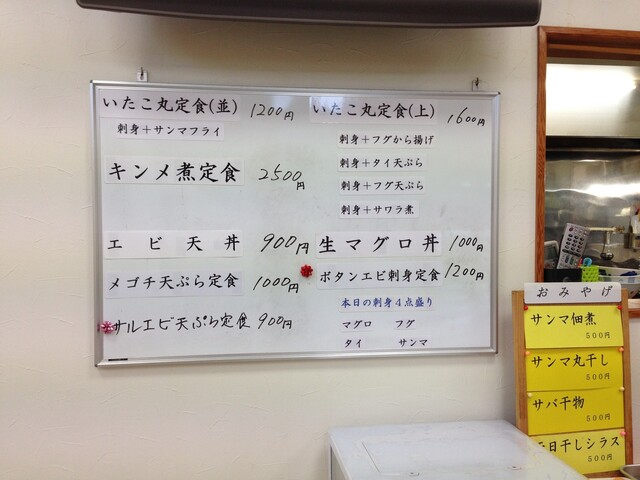 いたこ丸定食(並) 1200円
刺身+サンマフライ
キンメ煮定食 2500円
エビ天丼 900円
メゴチ天ぷら定食 1000円
サルエビ天ぷら定食 900円
いたこ丸定食(上) 1600円
刺身+フグから揚げ
刺身+タイ天ぷら
刺身+フグ天ぷら
刺身+サワラ煮
生マグロ丼 1000円
ボタンエビ刺身定食 1200円
本日の刺身4点盛り
マグロ フグ
タイ サンマ
おみやげ
サンマ佃煮
500円
サンマ丸干し
500円
サバ干物
500円
日干しシラス
500円